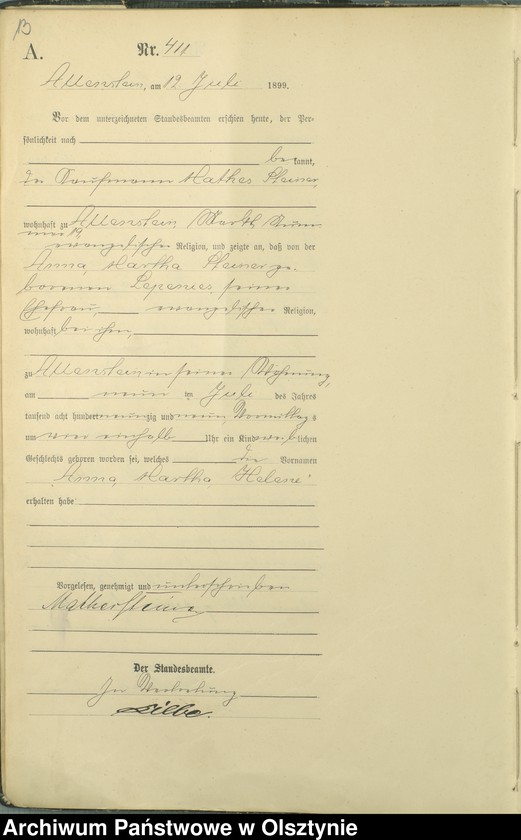 B
A.
Nr. 411
Allenstein, am 12 Juli 1899.
Vor dem unterzeichneten Standesbeamten erschien heute, der Per-
sönlichkeit nach
bekannt,
der Kaufmann Mathes Steiner,
wohnhaft zu Allenstein, Markt
evangelischer Religion, und zeigte an, daß von der
Anna, Martha Steiner ge-
borenen Lepenies seiner
Ehefrau, evangelischer Religion,
wohnhaft bei ihm,
zu Allenstein in seiner Wohnung,
am neun ten Juli des Jahres
tausend acht hundert neunzig und neun, Vormittags
um einhalb Uhr ein Kind weiblichen
Geschlechts geboren worden sei, welches die Vornamen
Anna, Martha, Helene
erhalten habe
Vorgelesen, genehmigt und unterschrieben
Mathes Steiner
Der Standesbeamte.
In Vertretung
Archiwum Państwowe w Olsztynie